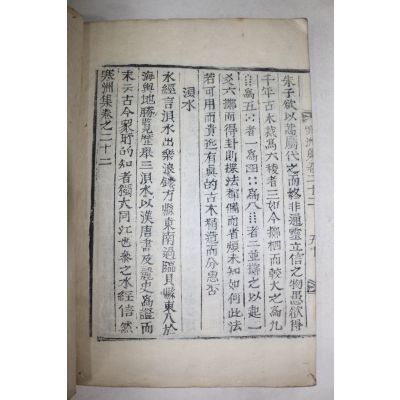 寒洲集卷二十二
朱子欲以蓍扇代之而終非通靈立信之物愚欲得
千年古木裁爲六稜者三如今擲栖而較大之爲九
爲五者一爲爲八者二並擲之以起一
爻六擲而得卦則揲法都備而者頗未知如何此法
若可用而貴近有眞的古木精造而分惠否
浿水
水經言浿水出樂浪鏤方縣東南過臨貝縣東入於
海輿地勝覽歷擧三浿水以漢唐書及麗史爲證而
末云古今衆所的知者獨大同江也參之水經信然
寒洲集卷之二十二